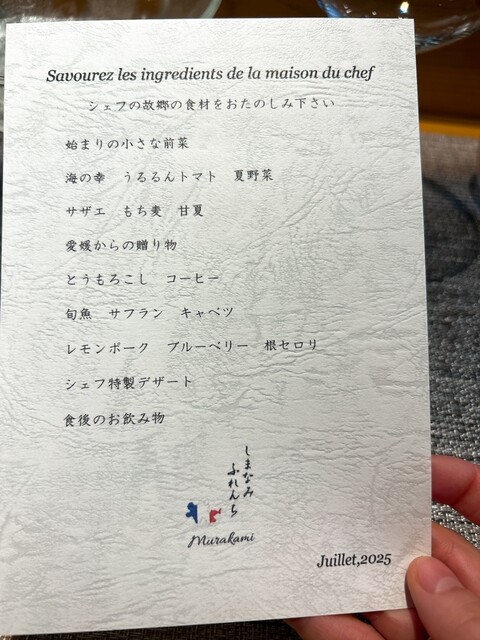 Savourez les ingredients de la maison du chef
シェフの故郷の食材をおたのしみ下さい
始まりの小さな前菜
海の幸　うるるんトマト　夏野菜
サザエ　もち麦　甘夏
愛媛からの贈り物
とうもろこし　コーヒー
旬魚　サフラン　キャベツ
レモンポーク　ブルーベリー　根セロリ
シェフ特製デザート
食後のお飲み物
しまなみ
ふれんち
Murakami
Juillet,2025